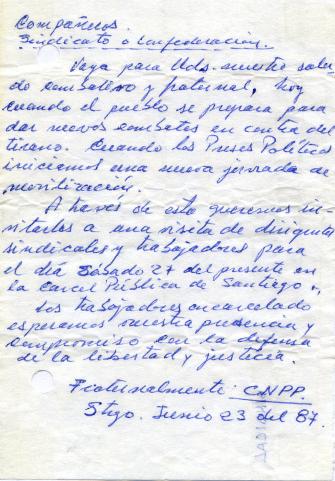 Compañeros.
Sindicato o Confederación.
Vaya para Uds. nuestro salu
do combativo y fraternal, hoy
cuando el pueblo se prepara para
dar nuevos combates en contra del
tirano. Cuando los Presos Políticos
iniciamos una nueva jornada de
movilización.
A través de esta queremos in-
vitarlos a una visita de dirigentes
sindicales y trabajadores para
el día Sábado 27 del presente en
la Carcel Pública de Santiago.
Los trabajadores encarcelado
esperamos vuestra presencia y
compromiso con la defensa
de la libertad y justicia.
Fraternalmente: CNPP.
Stgo. Junio 23 del 87.